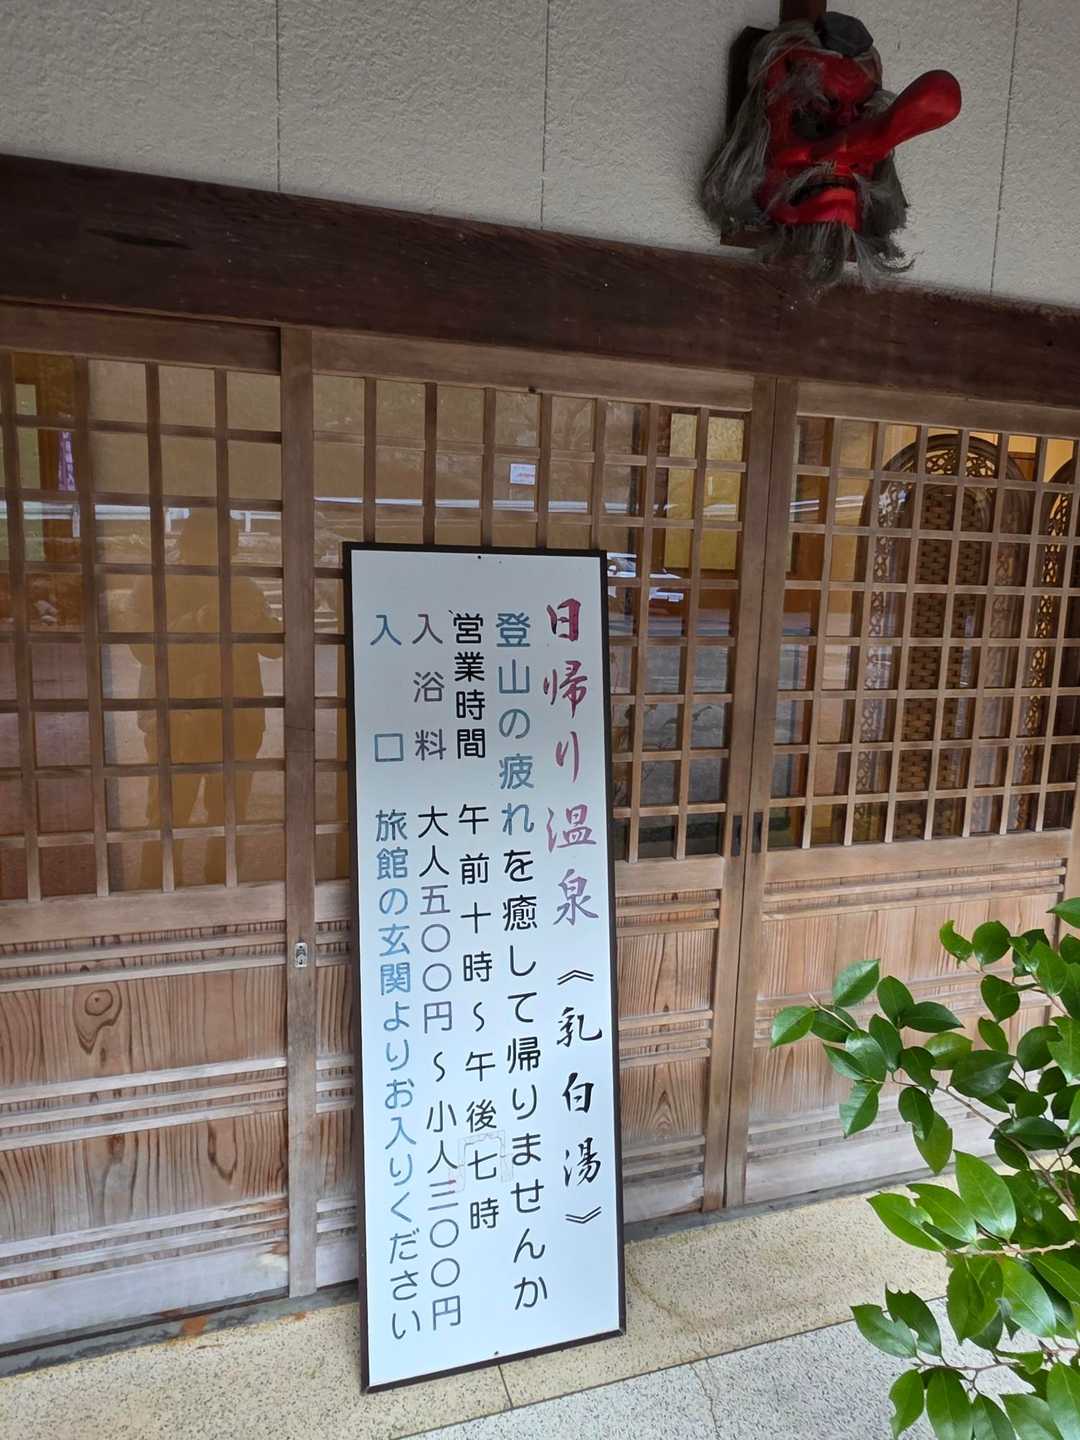 日帰り温泉《乳白湯》
登山の疲れを癒して帰りませんか
営業時間 午前十時～午後七時
入浴料 大人五〇〇円～小人三〇〇円
入口 旅館の玄関よりお入りください